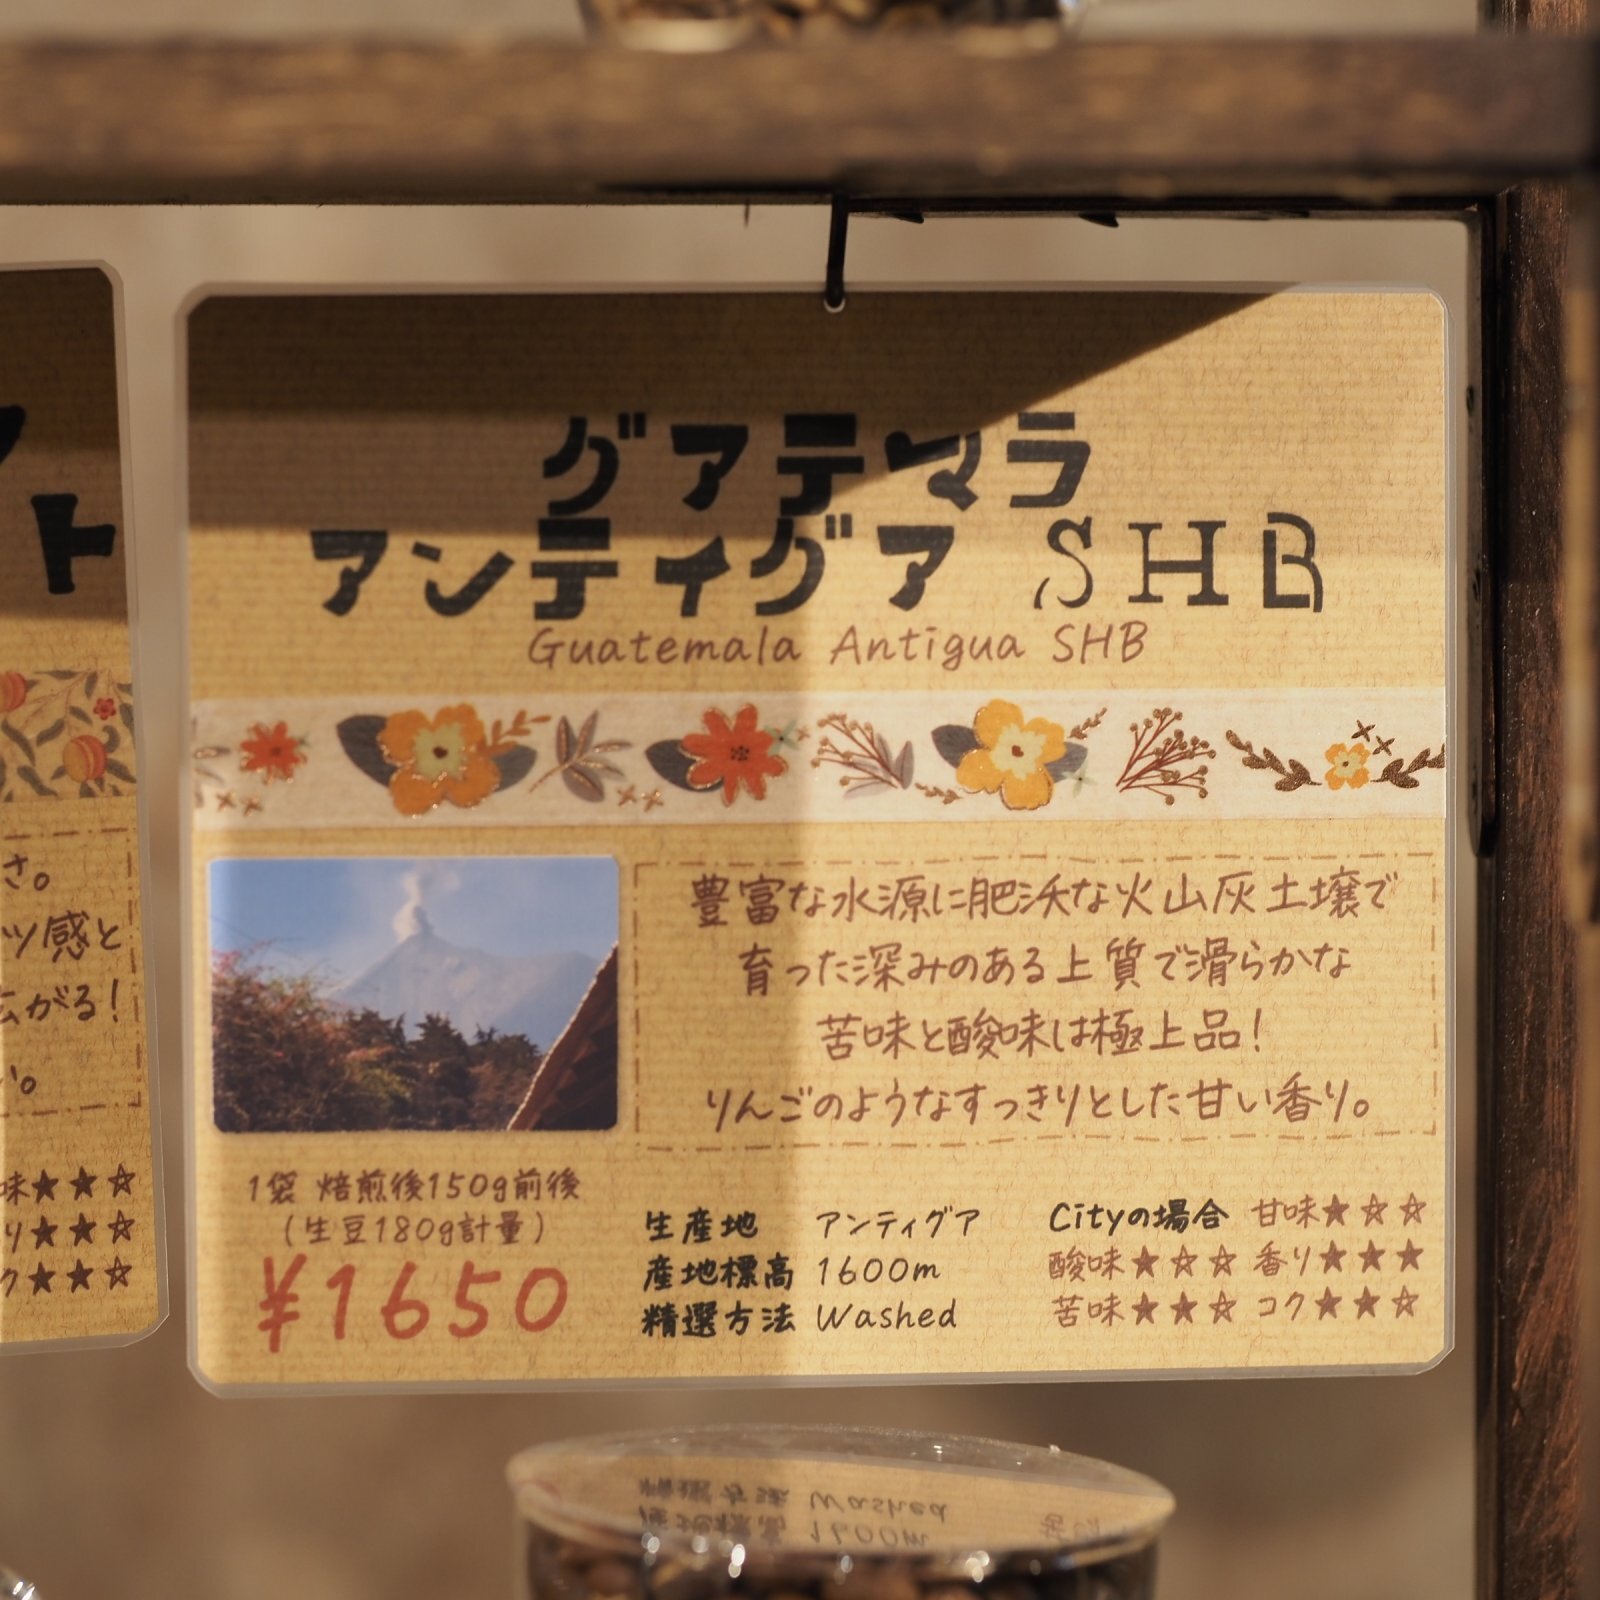 グアテマラ
アンティグア SHB
Guatemala Antigua SHB
豊富な水源に肥沃な火山灰土壌で
育った深みのある上質で滑らかな
苦味と酸味は極上品!
りんごのようなすっきりとした甘い香り。
1袋 焙煎後150g前後
(生豆180g計量)
¥1650
生産地 アンティグア
産地標高 1600m
精選方法 Washed
Cityの場合 甘味★☆☆
酸味★☆☆ 香り★★★
苦味★★☆ コク★★☆
ト
さ。
ツ感と
広がる!
い。
味★★☆
り★★☆
ク★★☆